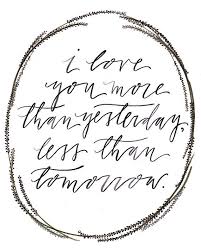 i love
you more
than yesterday,
less than
tomorrow.